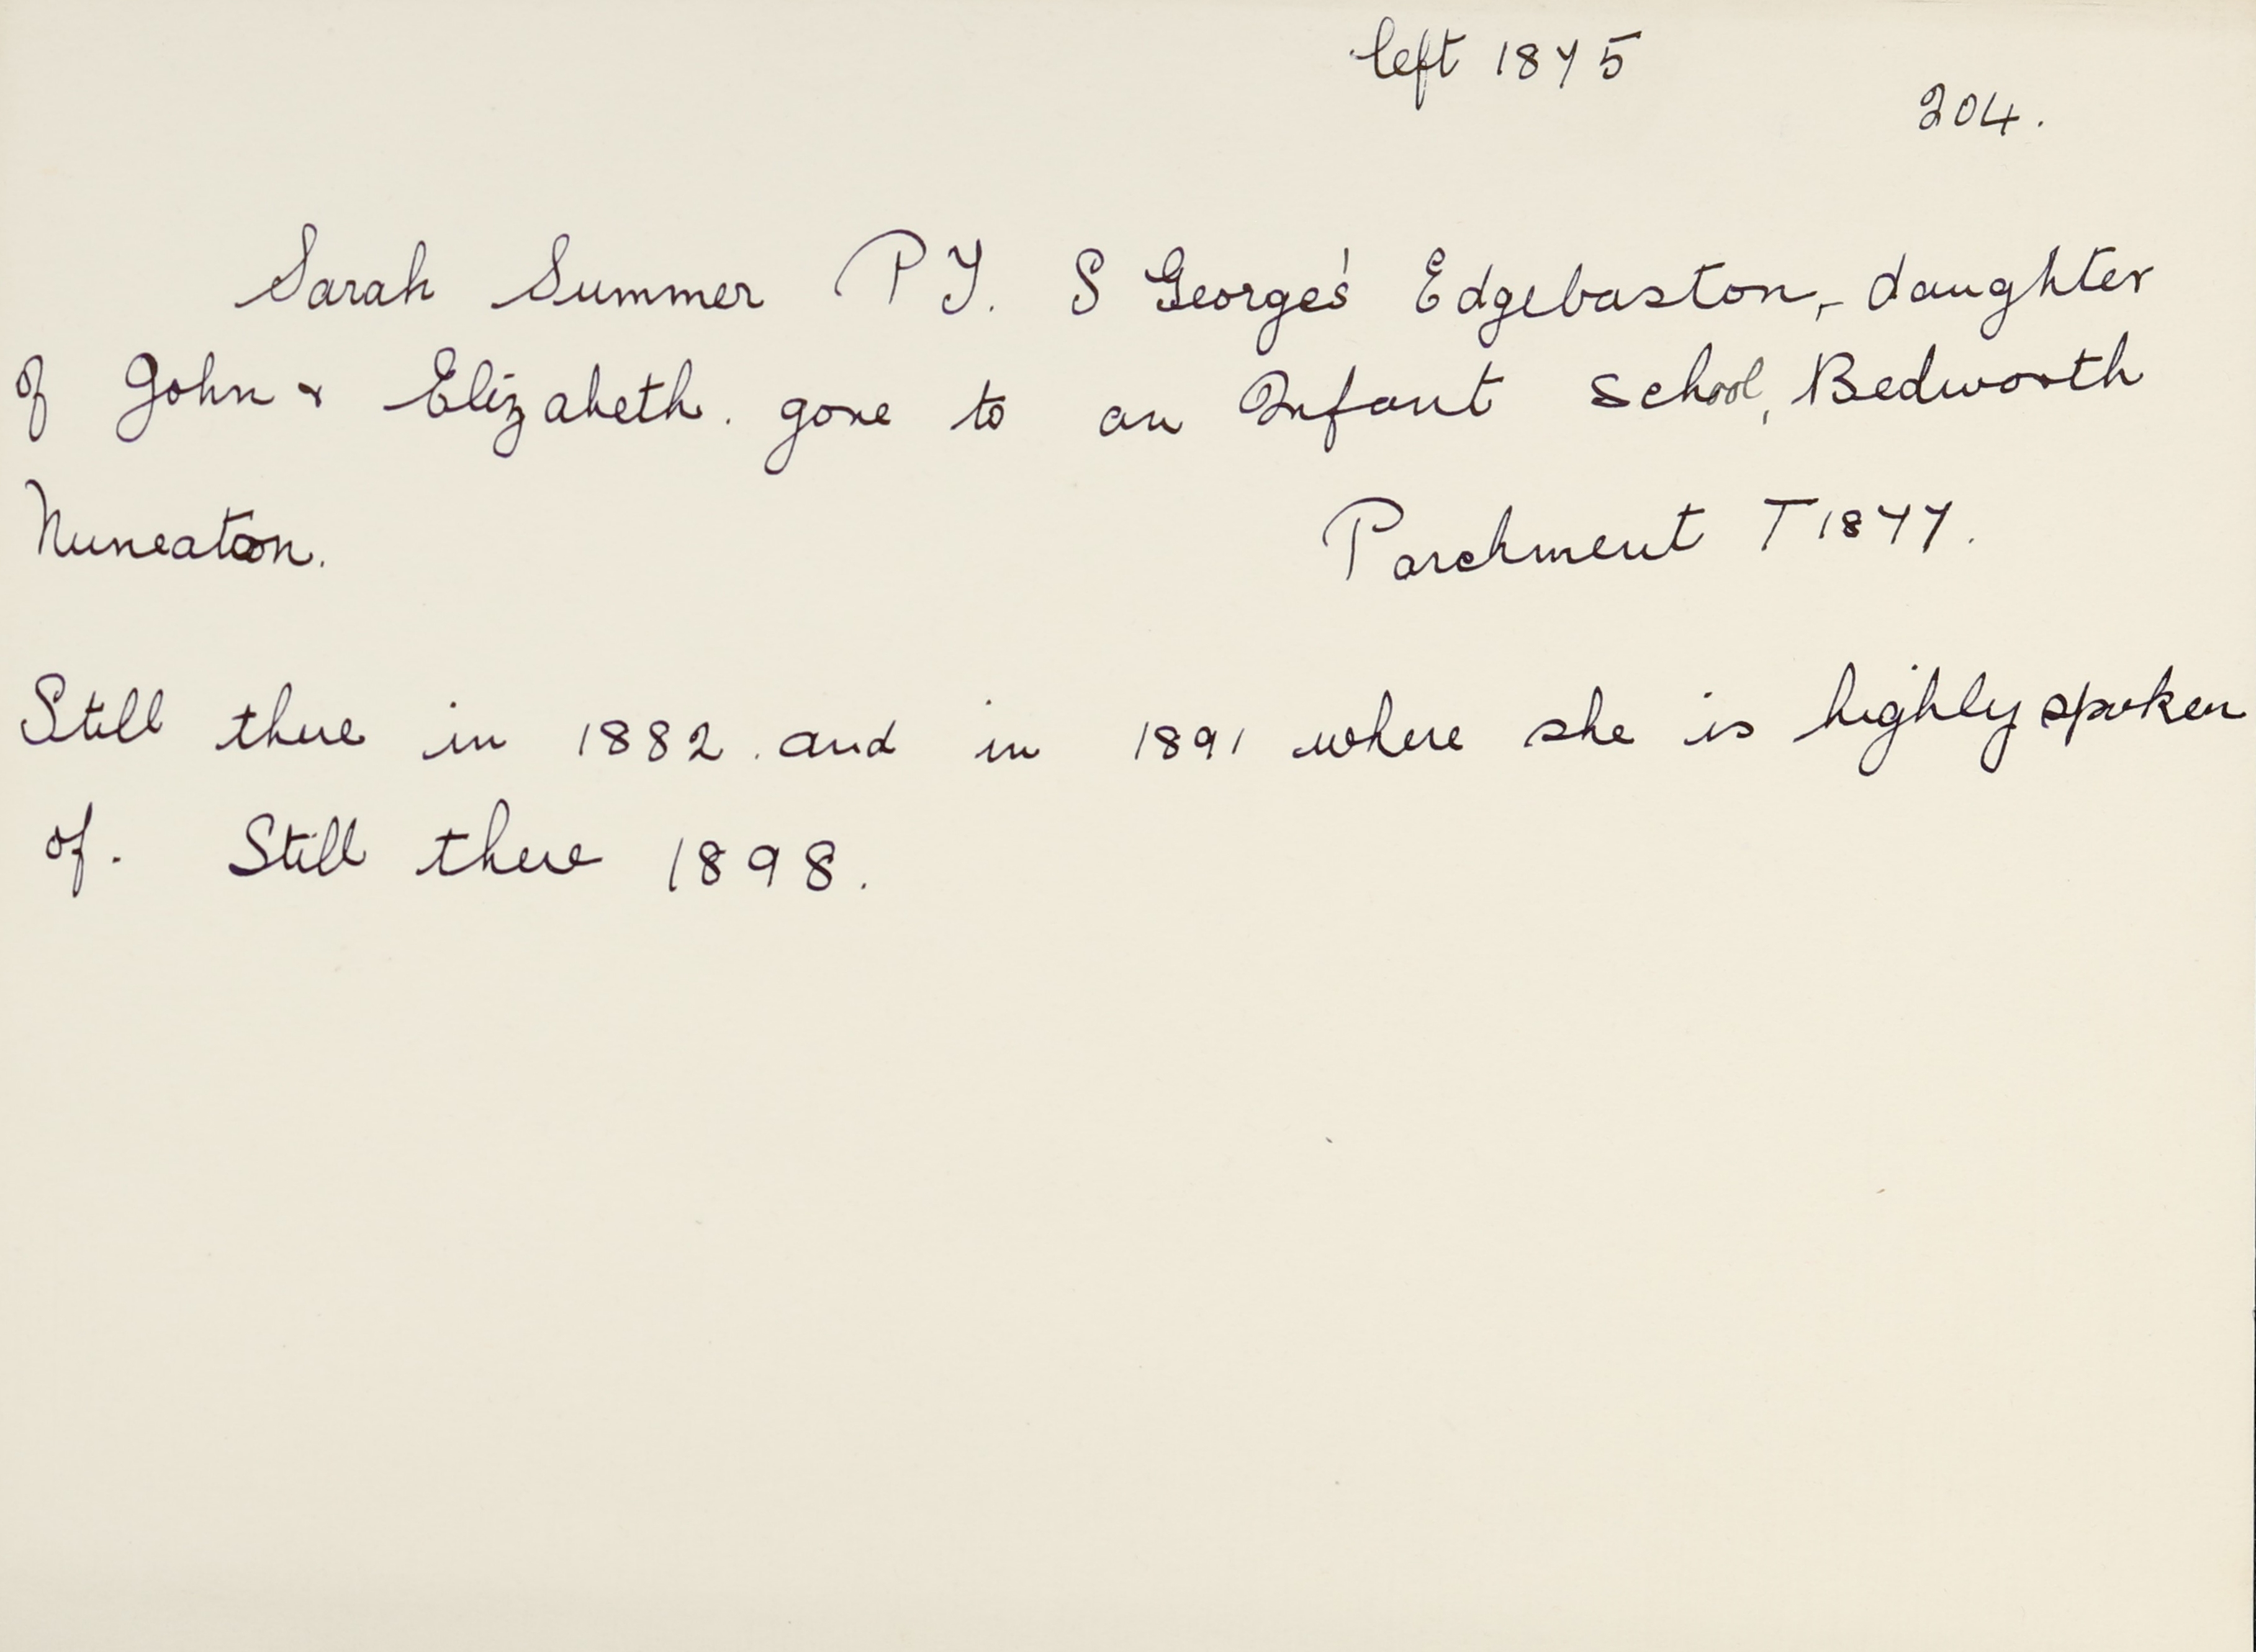 left 1875
204.
Sarah Summer P T. S George's Edgebaston, - daughter
of John & Elizabeth. gone to an Infant School, Bedworth
Nuneaton. Parchment T 1877.
Still there in 1882. and in 1891 where she is highly spoken
of. Still there 1898.